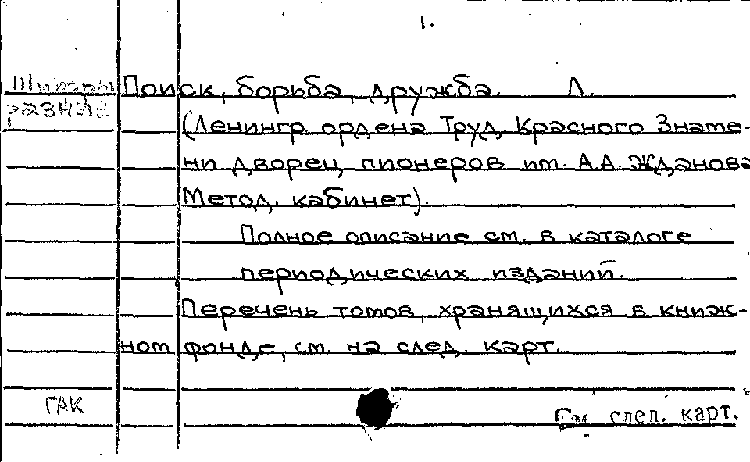 1.
Шифры Поиск, борьба, дружба. Л.
разные (Ленингр. ордена Труд. Красного Знаме-
ни дворец пионеров им. А.А. Жданова
Метод. кабинет).
Полное описание см. в каталоге
периодических изданий.
Перечень томов, хранящихся в книж-
ном фонде, см. на след. карт.
ГАК
См. след. карт.